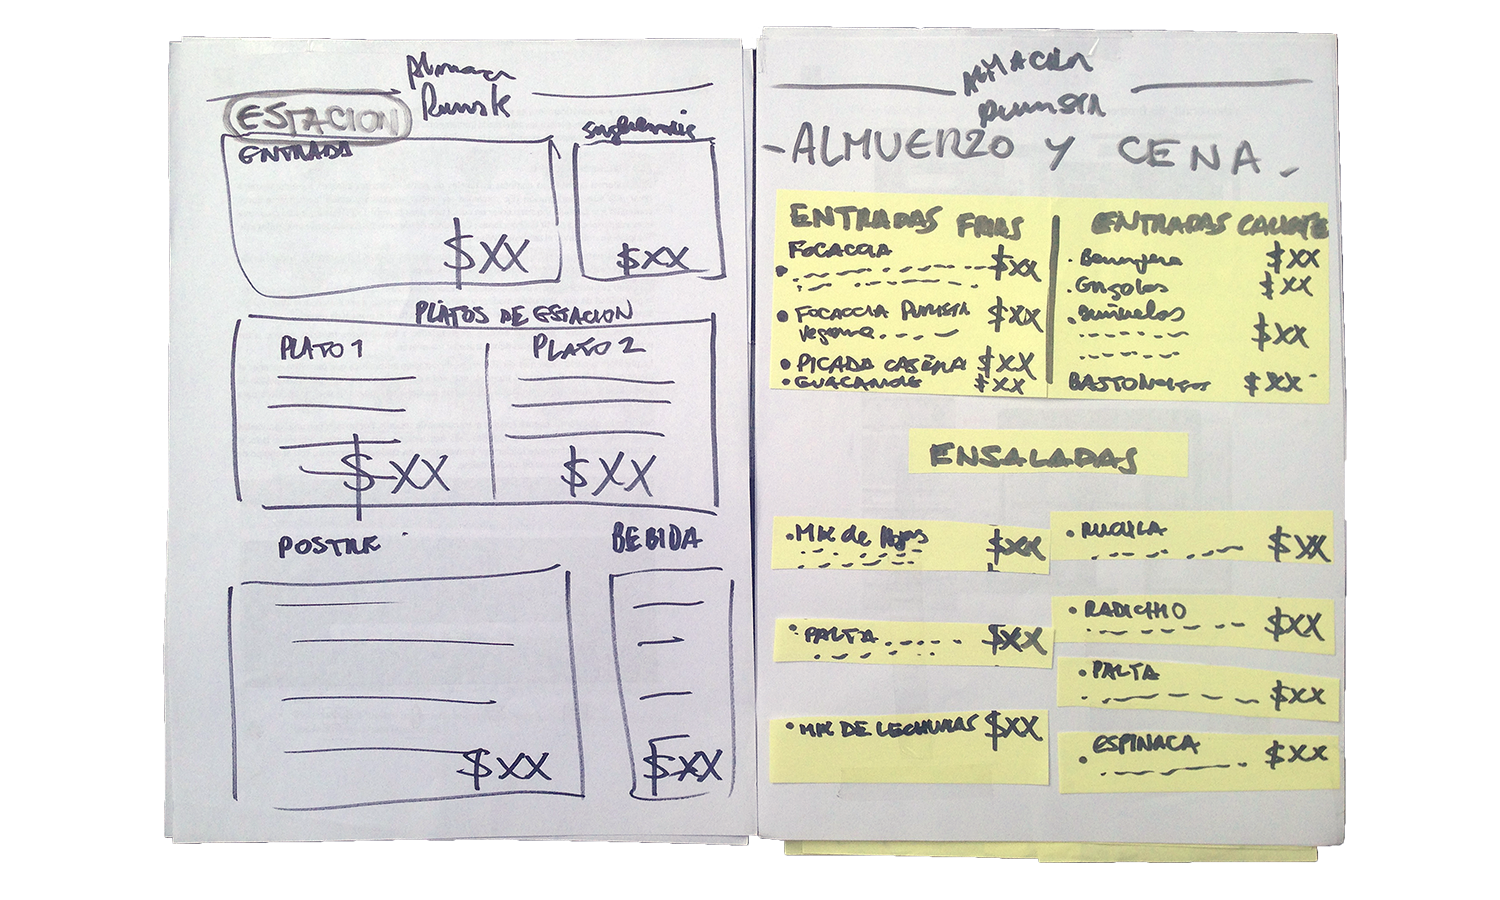 Almacen
Purista
ESTACION
ENTRADA
$XX
Sugerencia
$XX
PLATOS DE ESTACION
PLATO 1
$XX
PLATO 2
$XX
POSTRE
$XX
BEBIDA
$XX
ALMACEN
PURISTA
-ALMUERZO Y CENA-
ENTRADAS FRIAS
FOCACCIA
$XX
• FOCACCIA PURISTA $XX
Vegana
• PICADA CASERA $XX
• GUACAMOLE $XX
ENTRADAS CALIENTES
• Berenjena $XX
• Gírgolas $XX
• Buñuelos
$XX
BASTONCITOS $XX
ENSALADAS
• Mix de Hojas $XX
• PALTA $XX
• MIX DE LECHUGAS $XX
• RUCULA $XX
• RADICHIO $XX
• PALTA $XX
• ESPINACA $XX